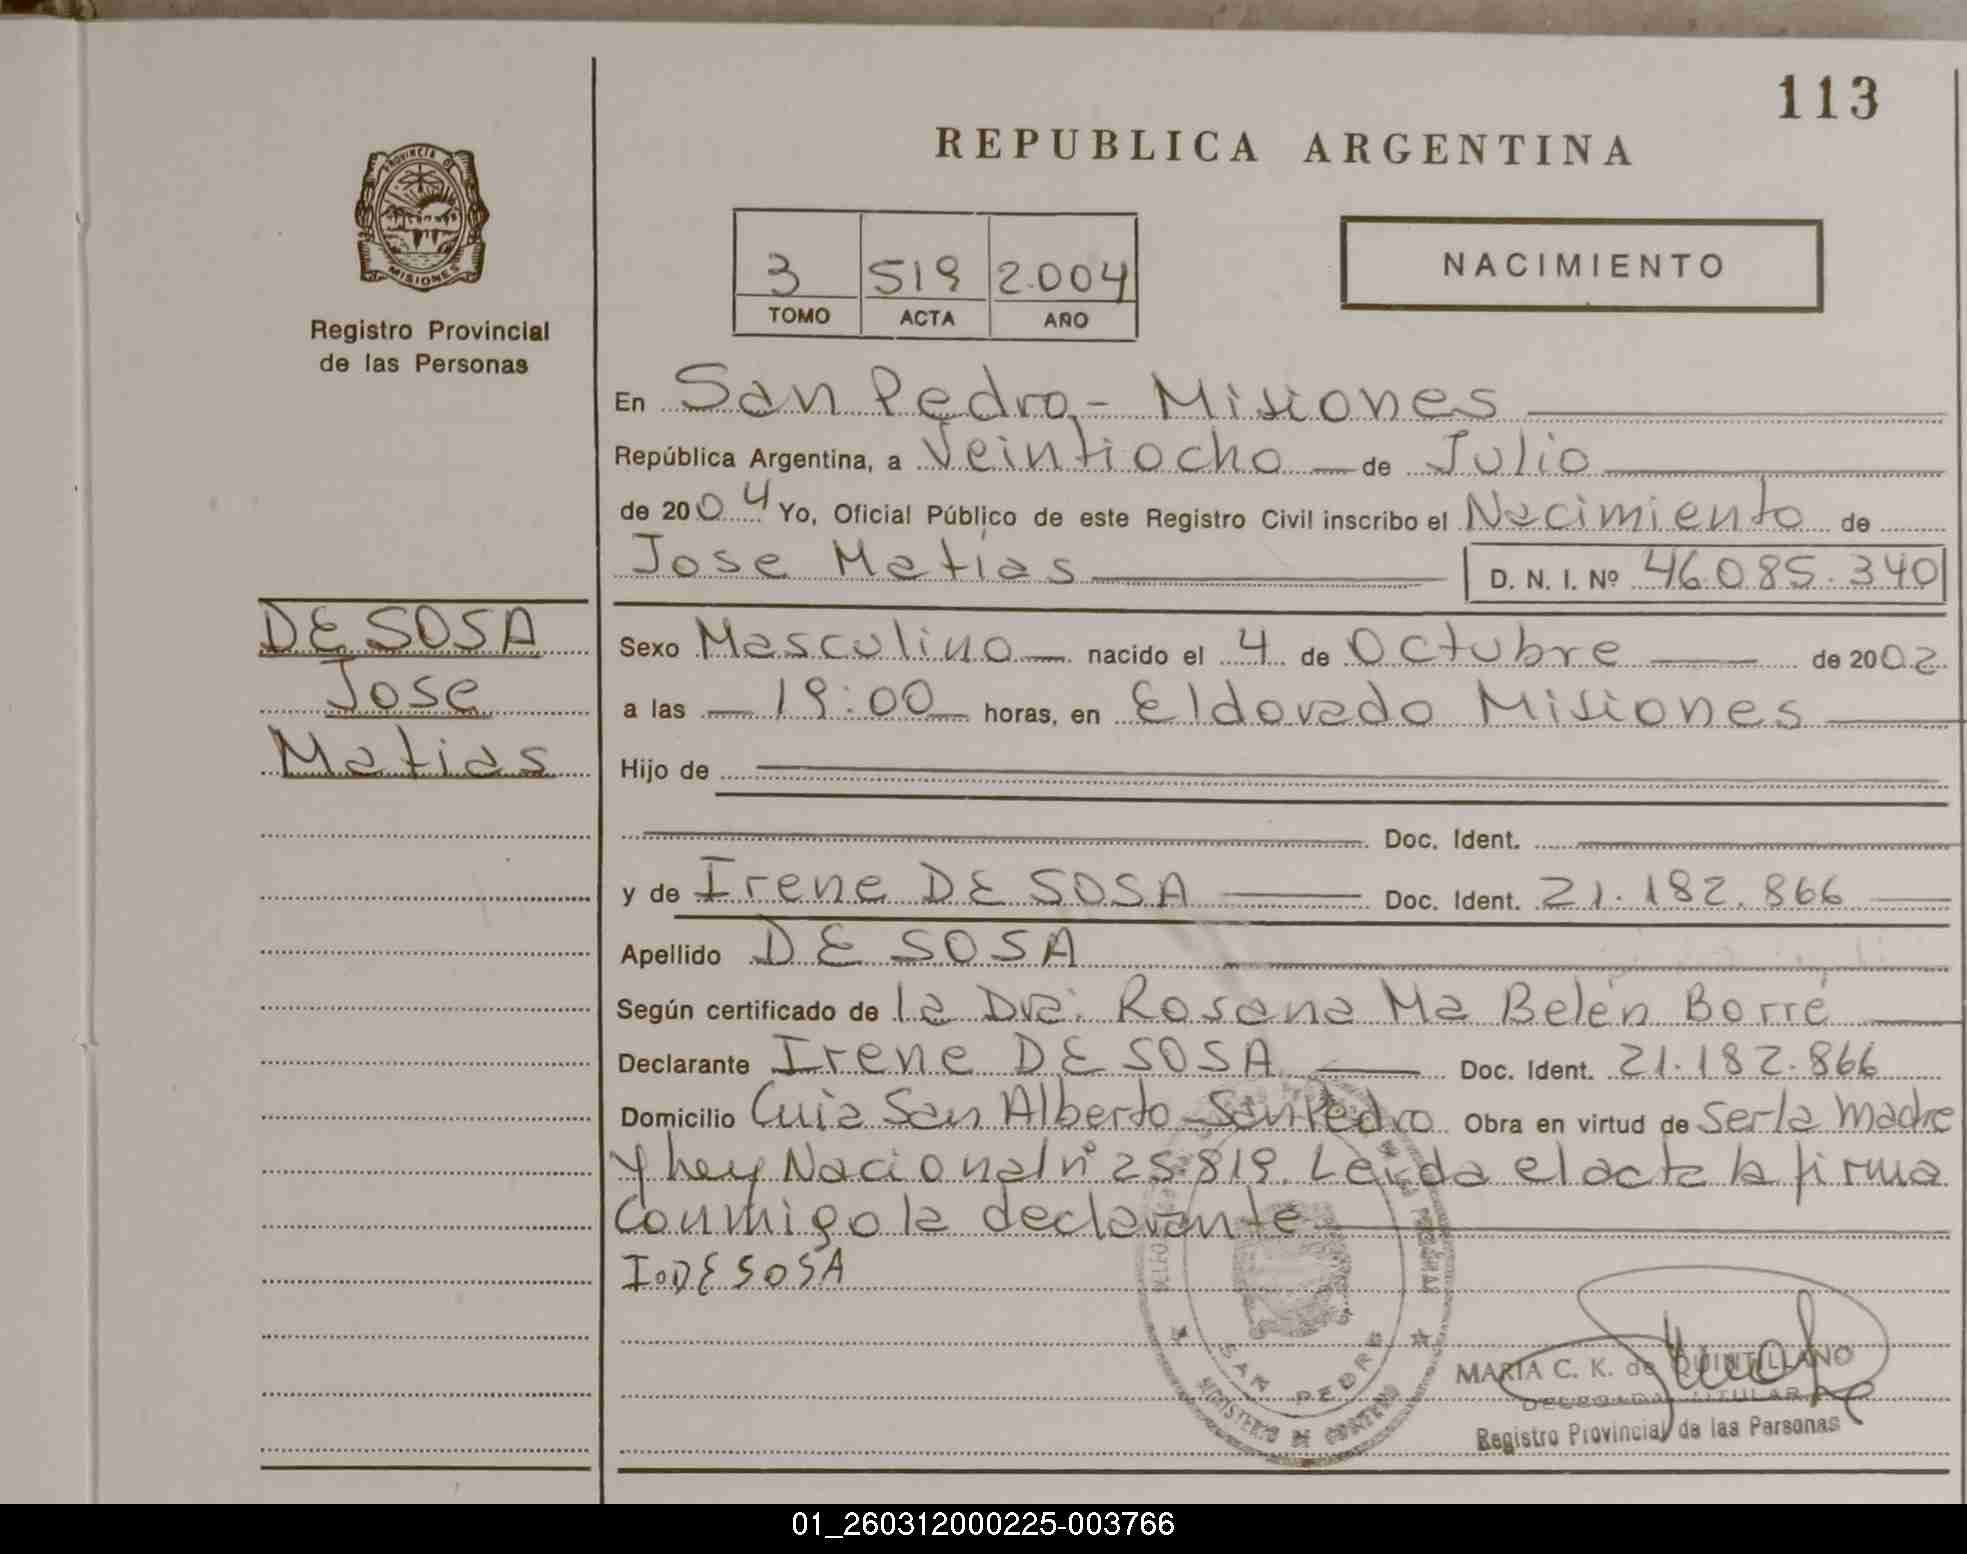 113
REPUBLICA ARGENTINA
PROVINCIA DE
MISIONES
Registro Provincial
de las Personas
3 519 2.004
TOMO ACTA AÑO
NACIMIENTO
En San Pedro - Misiones
República Argentina, a Veintiocho de Julio
de 2004 Yo, Oficial Público de este Registro Civil inscribo el Nacimiento de
Jose Matias D. N. I. Nº 46.085.340
DE SOSA
Jose
Matias
Sexo Masculino nacido el 4 de Octubre de 2002
a las 19:00 horas, en Eldorado Misiones
Hijo de
Doc. Ident.
y de Irene DE SOSA Doc. Ident. 21.182.866
Apellido DE SOSA
Según certificado de la Dra. Rosana Ma Belén Borré
Declarante Irene DE SOSA Doc. Ident. 21.182.866
Domicilio Cuia San Alberto - San Pedro Obra en virtud de Ser la Madre
y ley Nacional nº 25.819. Leida el acta la firma
Conmigo la declarante
I. DE SOSA
SAN PEDRO
MINISTERIO DE GOBIERNO
MARIA C. K. de QUINTILLANO
DELEGADA TITULAR
Registro Provincial de las Personas
01_260312000225-003766